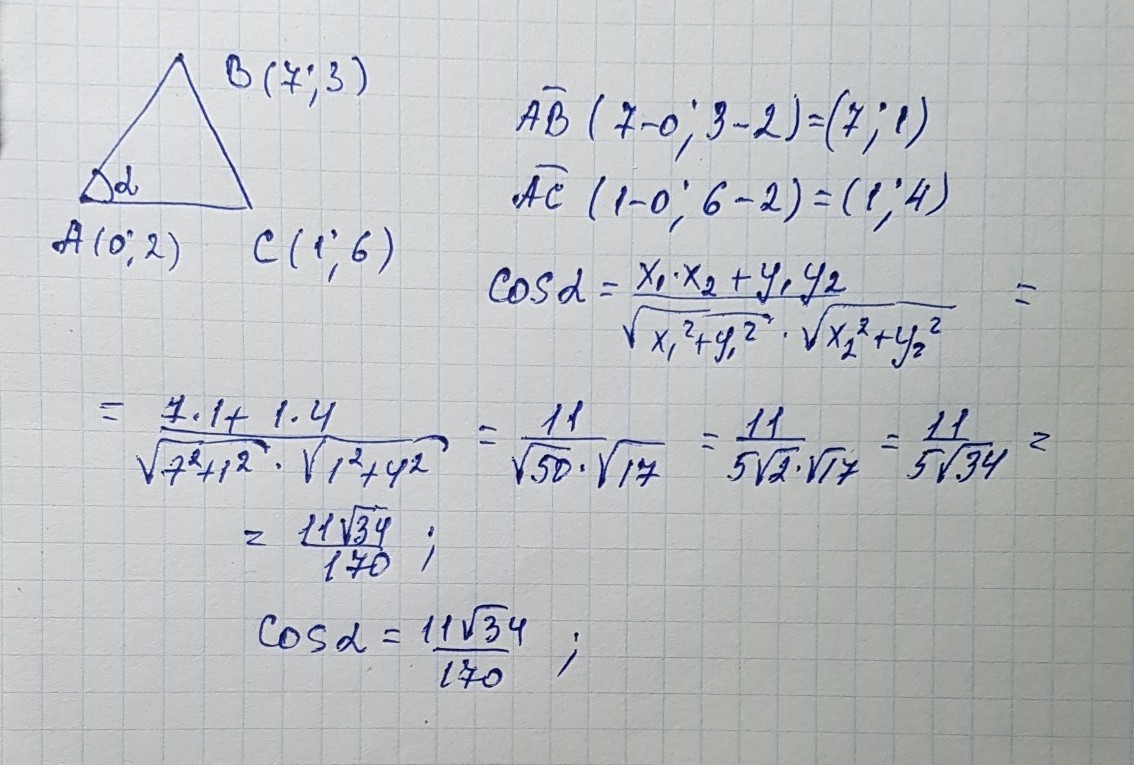 B(7;3)
α
A(0;2) C(1;6)
AB̅ (7-0; 3-2)=(7;1)
AC̅ (1-0; 6-2)=(1;4)
cosα = (x₁·x₂+y₁y₂)/(√(x₁²+y₁²)·√(x₂²+y₂²)) =
= (7·1+1·4)/(√(7²+1²)·√(1²+4²)) = 11/(√50·√17) = 11/(5√2·√17) = 11/(5√34) =
= 11√34/170 ;
cosα = 11√34/170 ;